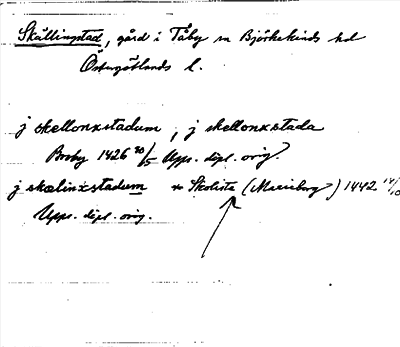 Skällingstad, gård i Tåby sn Björkekinds hd
Östergötlands l.
j skellonxstadum, j skellonxstada
Broby 1426 20/5 Upps. dipl. orig.
j skælinxstadum Skolista (Marieborg) 1442 14/10
Upps. dipl. orig.